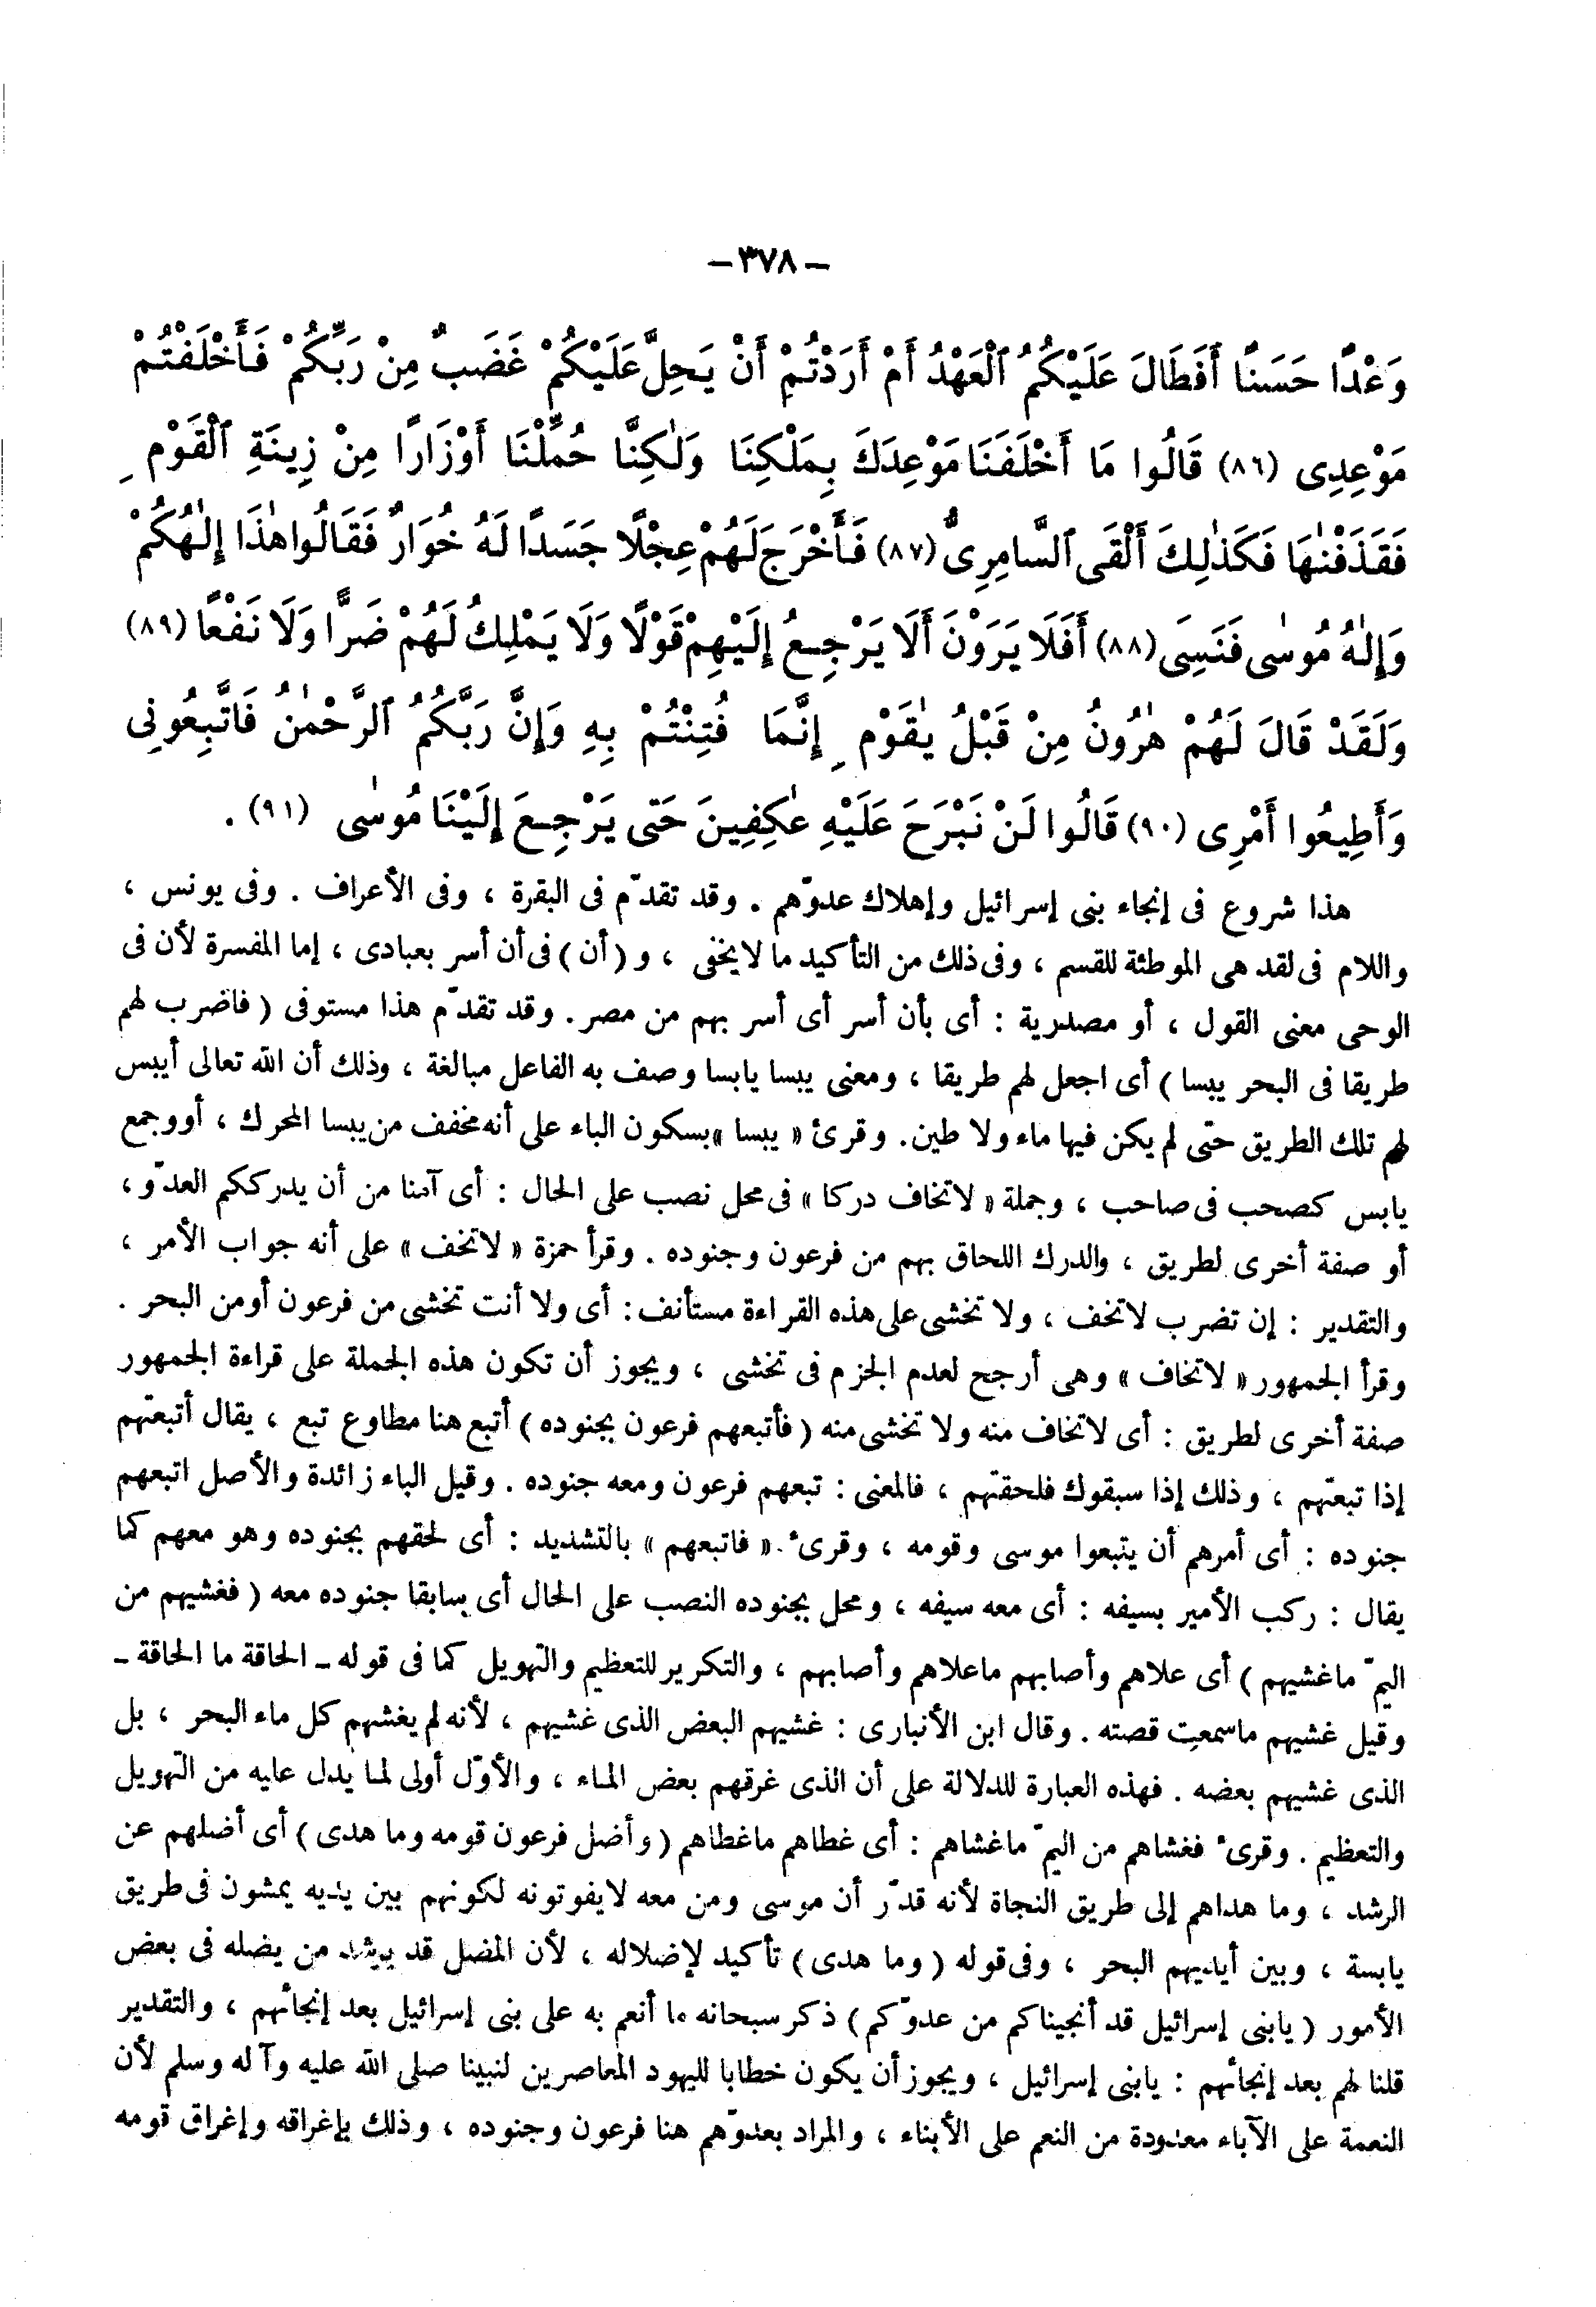 – ٣٧٨ –
وَعْدًا حَسَنًا أَفَطَالَ عَلَيْكُمُ ٱلْعَهْدُ أَمْ أَرَدْتُمْ أَنْ يَحِلَّ عَلَيْكُمْ غَضَبٌ مِنْ رَبِّكُمْ فَأَخْلَفْتُمْ
مَوْعِدِى (٨٦) قَالُوا مَا أَخْلَفْنَا مَوْعِدَكَ بِمَلْكِنَا وَلٰكِنَّا حُمِّلْنَا أَوْزَارًا مِنْ زِينَةِ ٱلْقَوْمِ
فَقَذَفْنٰهَا فَكَذٰلِكَ أَلْقَى ٱلسَّامِرِىُّ (٨٧) فَأَخْرَجَ لَهُمْ عِجْلًا جَسَدًا لَهُ خُوَارٌ فَقَالُوا هٰذَا إِلٰهُكُمْ
وَإِلٰهُ مُوسٰى فَنَسِىَ (٨٨) أَفَلَا يَرَوْنَ أَلَا يَرْجِعُ إِلَيْهِمْ قَوْلًا وَلَا يَمْلِكُ لَهُمْ ضَرًّا وَلَا نَفْعًا (٨٩)
وَلَقَدْ قَالَ لَهُمْ هٰرُونُ مِنْ قَبْلُ يٰقَوْمِ إِنَّمَا فُتِنْتُمْ بِهِ وَإِنَّ رَبَّكُمُ ٱلرَّحْمٰنُ فَاتَّبِعُونِى
وَأَطِيعُوا أَمْرِى (٩٠) قَالُوا لَنْ نَبْرَحَ عَلَيْهِ عٰكِفِينَ حَتّى يَرْجِعَ إِلَيْنَا مُوسٰى (٩١) .
هذا شروع فى إنجاء بنى إسرائيل وإهلاك عدوّهم . وقد تقدّم فى البقرة ، وفى الأعراف . وفى يونس ،
واللام فى لقد هى الموطئة للقسم ، وفى ذلك من التأكيد ما لا يخفى ، و ( أن ) فى أن أسر بعبادى ، إما المفسرة لأن فى
الوحى معنى القول ، أو مصدرية : أى بأن أسر أى أسر بهم من مصر . وقد تقدّم هذا مستوفى ( فاضرب لهم
طريقا فى البحر يبسا ) أى اجعل لهم طريقا ، ومعنى يبسا يابسا وصف به الفاعل مبالغة ، وذلك أن الله تعالى أيبس
لهم تلك الطريق حتى لم يكن فيها ماء ولا طين . وقرئ « يبسا » بسكون الباء على أنه مخفف من يبسا المحرك ، أو وجمع
يابس كصحب فى صاحب ، وجملة « لا تخاف دركا » فى محل نصب على الحال : أى آمنا من أن يدرككم العدوّ ،
أو صفة أخرى لطريق ، والدرك اللحاق بهم من فرعون وجنوده . وقرأ حمزة « لا تخف » على أنه جواب الأمر ،
والتقدير : إن تضرب لا تخف ، ولا تخشى على هذه القراءة مستأنف : أى ولا أنت تخشى من فرعون أو من البحر .
وقرأ الجمهور « لا تخاف » وهى أرجح لعدم الجزم فى تخشى ، ويجوز أن تكون هذه الجملة على قراءة الجمهور
صفة أخرى لطريق : أى لا تخاف منه ولا تخشى منه ( فأتبعهم فرعون بجنوده ) أتبع هنا مطاوع تبع ، يقال أتبعتهم
إذا تبعتهم ، وذلك إذا سبقوك فلحقتهم ، فالمعنى : تبعهم فرعون ومعه جنوده . وقيل الباء زائدة والأصل اتبعهم
جنوده : أى أمرهم أن يتبعوا موسى وقومه ، وقرئ « فاتبعهم » بالتشديد : أى لحقهم بجنوده وهو معهم كما
يقال : ركب الأمير بسيفه : أى معه سيفه ، ومحل بجنوده النصب على الحال أى سابقا جنوده معه ( فغشيهم من
اليمّ ما غشيهم ) أى علاهم وأصابهم ما علاهم وأصابهم ، والتكرير للتعظيم والتهويل كما فى قوله ـ الحاقة ما الحاقة ـ
وقيل غشيهم ما سمعت قصته . وقال ابن الأنبارى : غشيهم البعض الذى غشيهم ، لأنه لم يغشهم كل ماء البحر ، بل
الذى غشيهم بعضه . فهذه العبارة للدلالة على أن الذى غرقهم بعض الماء ، والأوّل أولى لما يدل عليه من التهويل
والتعظيم . وقرئ فغشاهم من اليمّ ما غشاهم : أى غطاهم ما غطاهم ( وأضل فرعون قومه وما هدى ) أى أضلهم عن
الرشد ، وما هداهم إلى طريق النجاة لأنه قدّر أن موسى ومن معه لا يفوتونه لكونهم بين يديه يمشون فى طريق
يابسة ، وبين أيديهم البحر ، وفى قوله ( وما هدى ) تأكيد لإضلاله ، لأن المضل قد يرشد من يضله فى بعض
الأمور ( يابنى إسرائيل قد أنجيناكم من عدوّكم ) ذكر سبحانه ما أنعم به على بنى إسرائيل بعد إنجائهم ، والتقدير
قلنا لهم بعد إنجائهم : يابنى إسرائيل ، ويجوز أن يكون خطابا لليهود المعاصرين لنبينا صلى الله عليه وآله وسلم لأن
النعمة على الآباء معدودة من النعم على الأبناء ، والمراد بعدوّهم هنا فرعون وجنوده ، وذلك بإغراقه وإغراق قومه